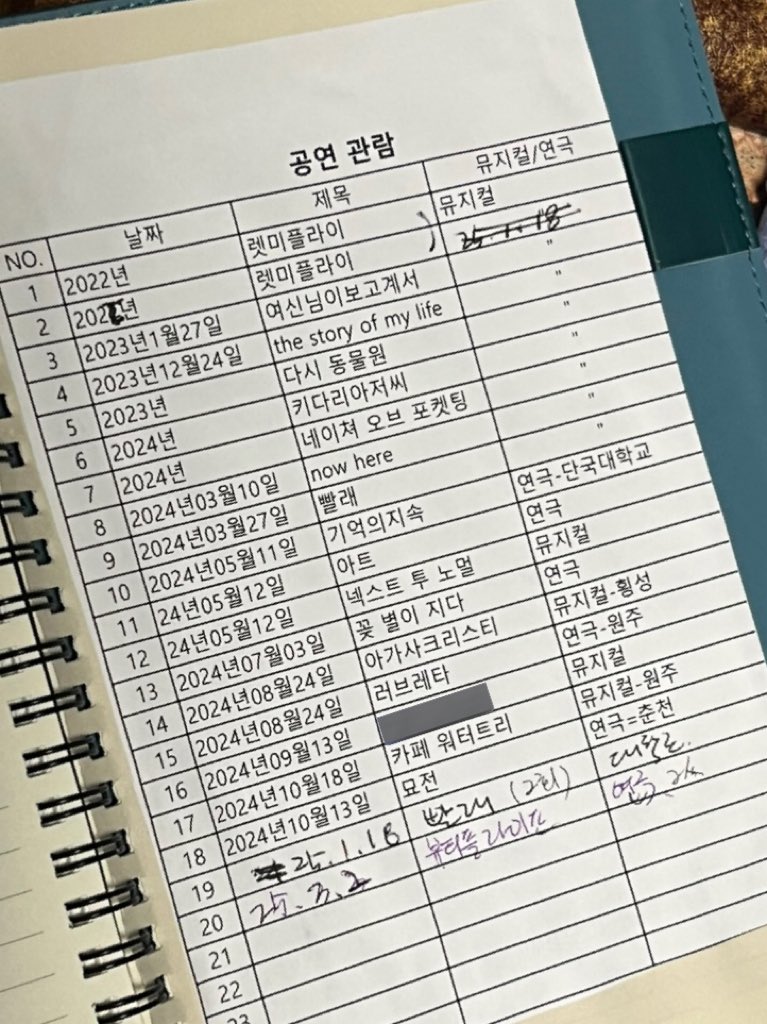 공연 관람
NO. 날짜 제목 뮤지컬/연극
1 2022년 렛미플라이 뮤지컬
2 202년 렛미플라이 ) 25.1.18
3 2023년1월27일 여신님이보고계서 "
4 2023년12월24일 the story of my life "
5 2023년 다시 동물원 "
6 2024년 키다리아저씨 "
7 2024년 네이쳐 오브 포켓팅 "
8 2024년03월10일 now here "
9 2024년03월27일 빨래 "
10 2024년05월11일 기억의지속 연극-단국대학교
11 24년05월12일 아트 연극
12 24년05월12일 넥스트 투 노멀 뮤지컬
13 2024년07월03일 꽃 별이 지다 연극
14 2024년08월24일 아가사크리스티 뮤지컬-횡성
15 2024년08월24일 러브레타 연극-원주
16 2024년09월13일 뮤지컬
17 2024년10월18일 카페 워터트리 뮤지컬-원주
18 2024년10월13일 묘전 연극=춘천
19 25.1.18 빨래 (2회) 대학로.
20 25.3.2 뷰티플라이프 연극.
21
22
23